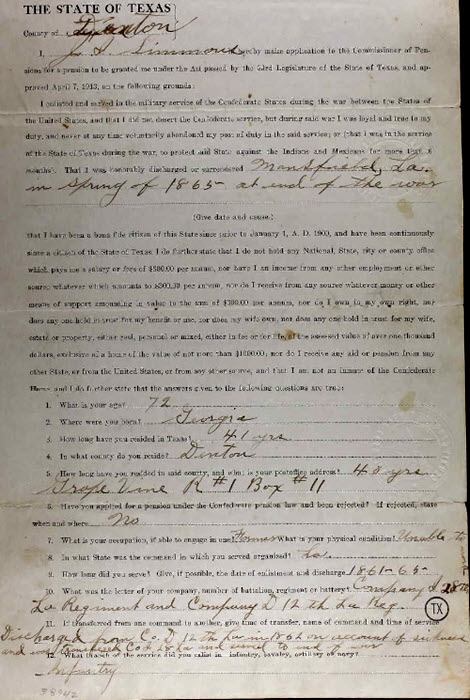 THE STATE OF TEXAS
County of Denton
I, J. S. Simmons hereby make application to the Commissioner of Pen-
sions for a pension to be granted me under the Act passed by the 33rd Legislature of the State of Texas, and ap-
proved April 7, 1913, on the following grounds:
I enlisted and served in the military service of the Confederate States during the war between the States of
the United States, and that I did not desert the Confederate service, but during said war I was loyal and true to my
duty, and never at any time voluntarily abandoned my post of duty in the said service; or (that I was in the service
of the State of Texas during the war, to protect said State against the Indians and Mexicans for more than 6
months). That I was honorably discharged or surrendered Mansfield, La.
in Spring of 1865 at end of the war
(Give date and cause.)
that I have been a bona fide citizen of this State since prior to January 1, A. D. 1900, and have been continuously
since a citizen of the State of Texas. I do further state that I do not hold any National, State, city or county office
which pays me a salary or fees of $300.00 per annum, nor have I an income from any other employment or other
source whatever which amounts to $300.00 per annum, nor do I receive from any source whatever money or other
means of support amounting in value to the sum of $300.00 per annum, nor do I own in my own right, nor
does any one hold in trust for my benefit or use, nor does my wife own, nor does any one hold in trust for my wife,
estate or property, either real, personal or mixed, either in fee or for life, of the assessed value of over one thousand
dollars, exclusive of a home of the value of not more than $1000.00; nor do I receive any aid or pension from any
other State, or from the United States, or from any other source, and that I am not an inmate of the Confederate
Home, and I do further state that the answers given to the following questions are true:
1. What is your age? 72
2. Where were you born? Georgia
3. How long have you resided in Texas? 41 yrs
4. In what county do you reside? Denton
5. How long have you resided in said county, and what is your postoffice address? 40 yrs
Grape Vine R #1 Box #11
6. Have you applied for a pension under the Confederate pension law and been rejected? If rejected, state
when and where. No
7. What is your occupation, if able to engage in one? Farmer What is your physical condition? Unable to
8. In what State was the command in which you served organized? La.
9. How long did you serve? Give, if possible, the date of enlistment and discharge. 1861-65-
10. What was the letter of your company, number of battalion, regiment or battery? Company 28th
La Regiment and Company D 12th La Reg.
TX
11. If transferred from one command to another, give time of transfer, name of command and time of service
Discharged from Co. D. 12th La in 1862 on account of sickness
and La and served to end of war
12. What branch of the service did you enlist in, infantry, cavalry, artillery or navy?
Infantry